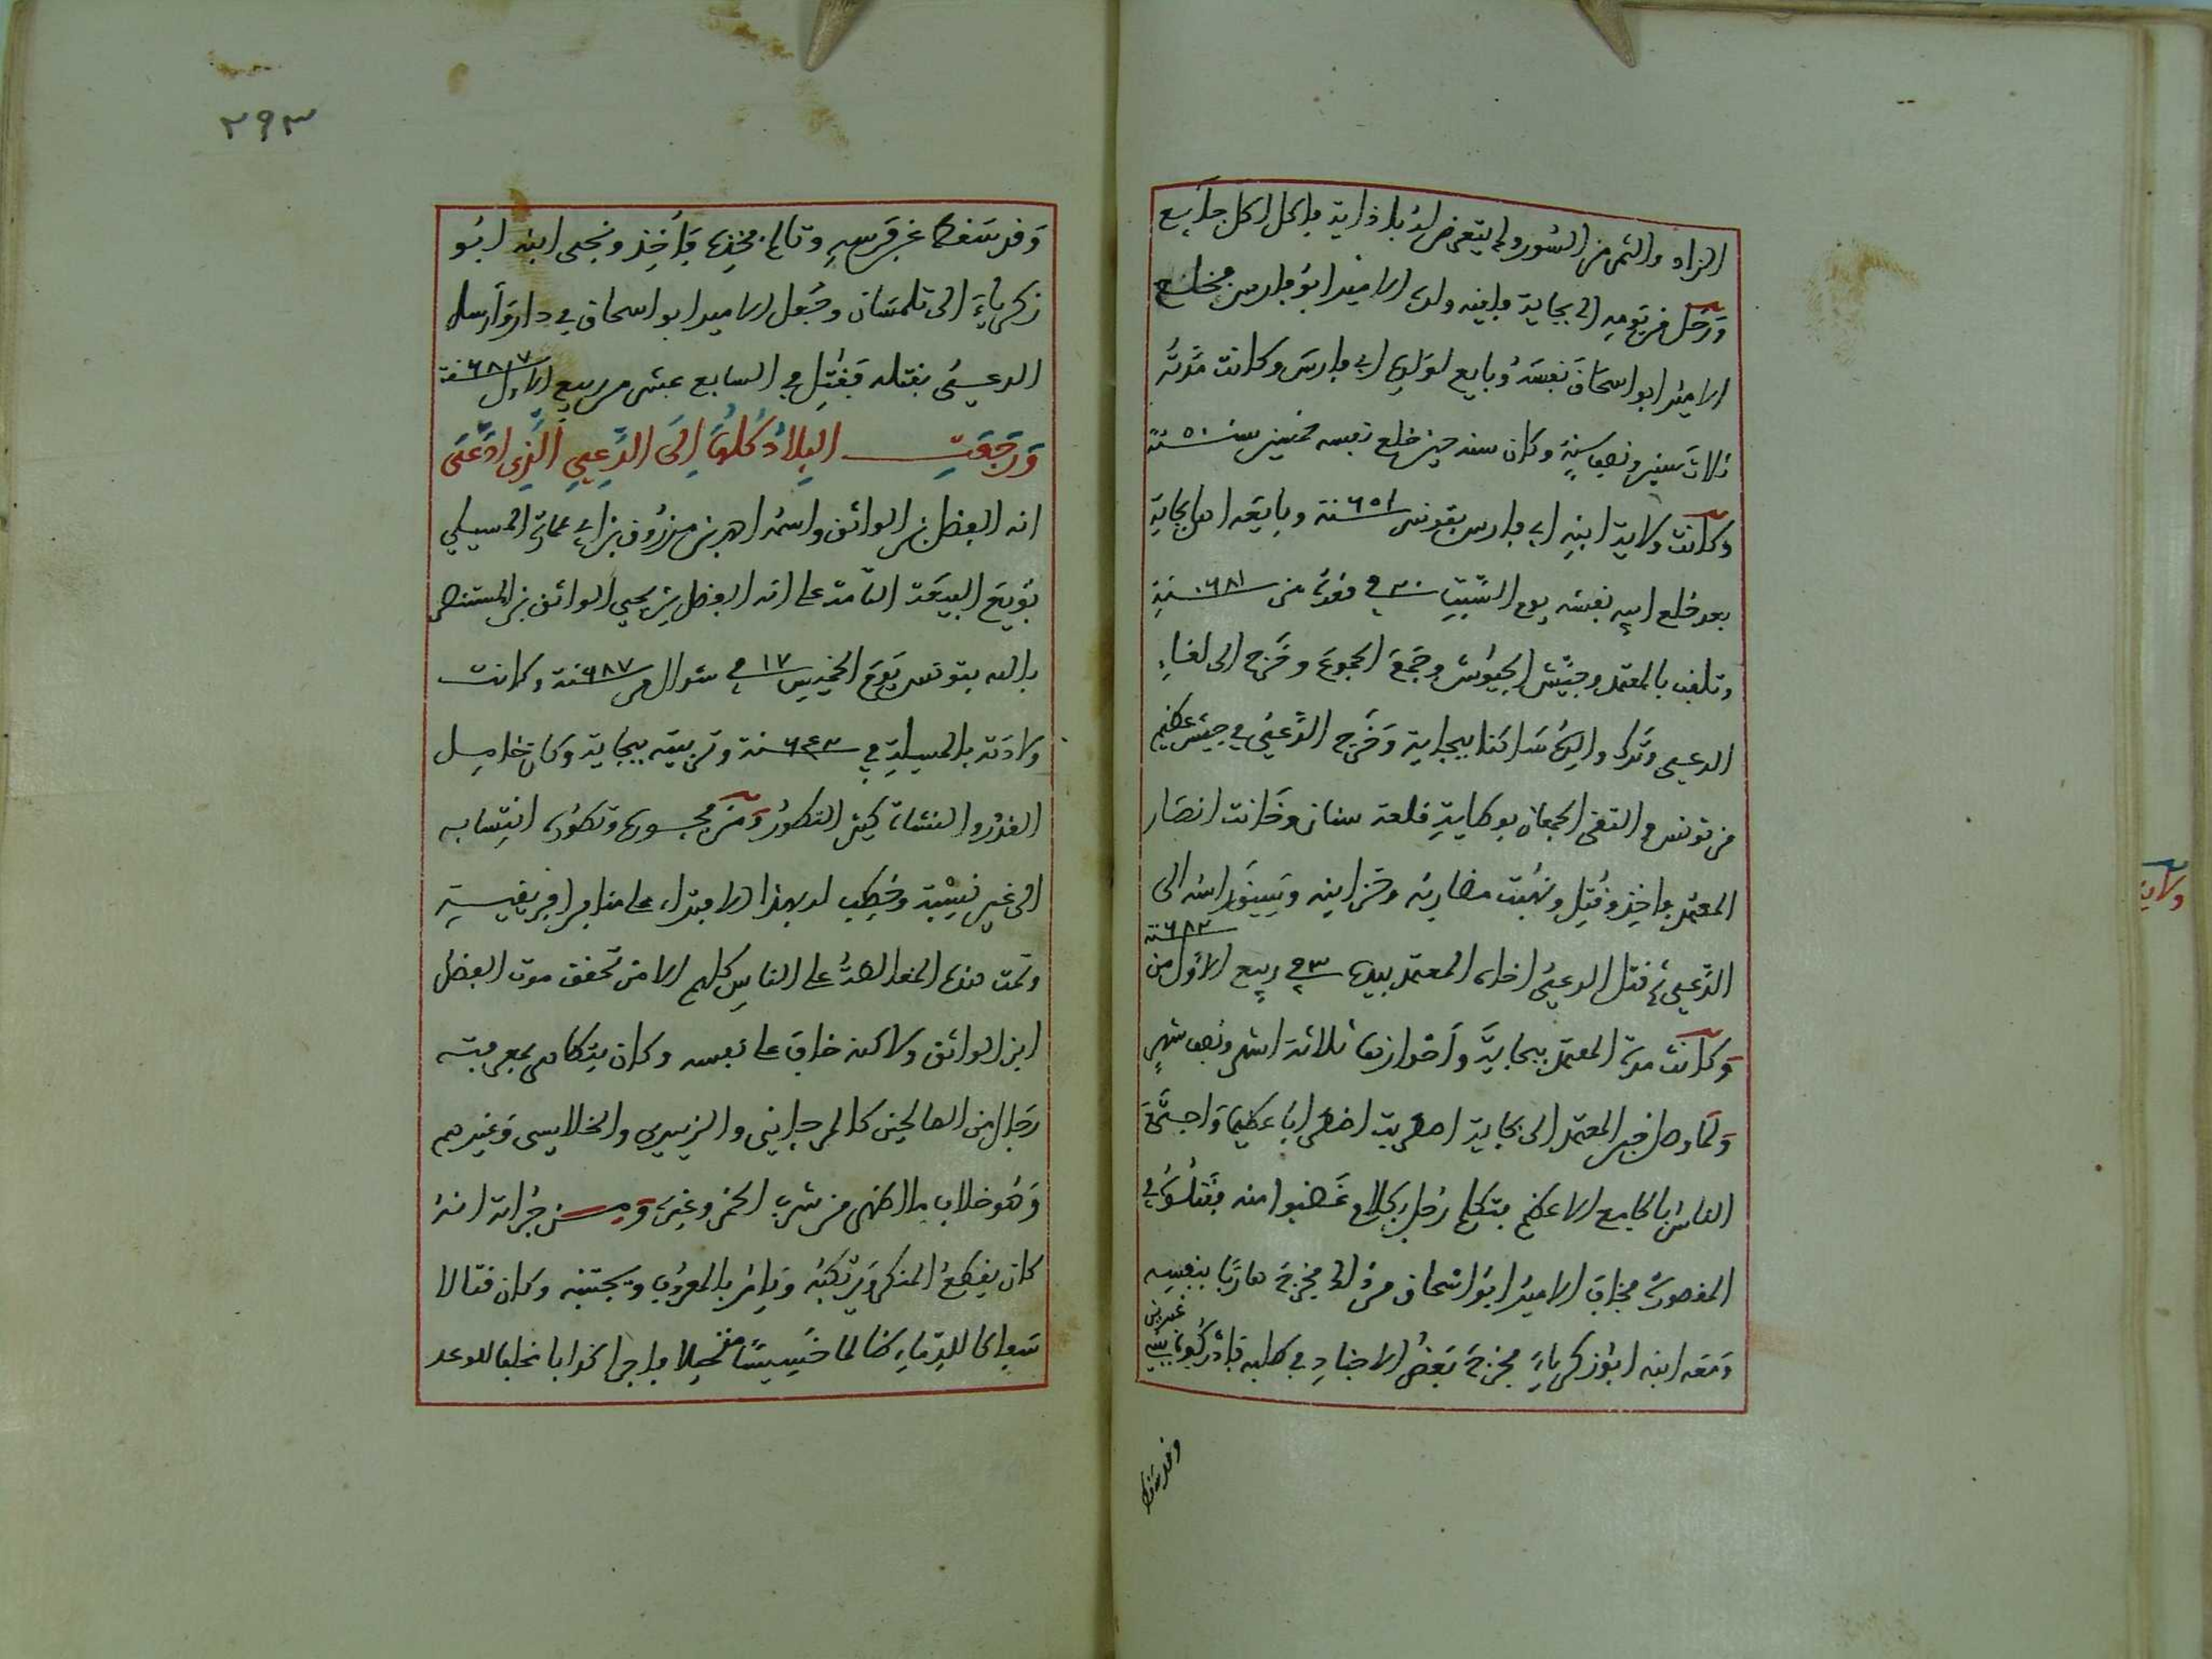 الزاد والتمر من السور ولم يتعرض له باذاية فاكل اكل جايع
ورحل من يومه الى بجاية فلقيه ولده الامير ابو فارس فخلع
الامير ابو اسحاق نفسه وبايع لولده ابي فارس وكانت مدته
ثلاث سنين ونصف سنة وكان سنه حين خلع نفسه خمسين سنة ٥٠ سنة
وكانت ولاية ابنه ابي فارس بتونس ٦٥١ سنة وبايعه اهل بجاية
بعد خلع ابيه نفسه يوم السبت ٣٠ في قعدة من ٦٨١ سنة
وتلقب بالمعتمد وجيش الجيوش وجمع الجموع وخرج الى لقاء
الدعي وترك والده ساكنا ببجاية وخرج الدعي في جيش عظيم
من تونس والتقى الجمعان بوطاية قلعة سنان وخانت انصار
المعتمد فاخذ وقتل ونهبت مضاربه وخزاينه وسيق راسه الى
الدعي ثم قتل الدعي اخاه المعتمد بيده ٣ في ربيع الاول من ٦٨٢ سنة
وكانت مدة المعتمد ببجاية واحوازها ثلاثة اشهر ونصف شهر
ولما وصل خبر المعتمد الى بجاية اضطربت اضطرابا عظيما واجتمع
الناس بالجامع الاعظم فتكلم رجل بكلام غضبوا منه فقتلوه في
المقصورة فخاف الامير ابو اسحاق من ذلك فخرج هاربا بنفسه
ومعه ابنه ابو زكرياء فخرج بعض الاجناد في طلبه فادركوه
وقد سقط
وقد سقط عن فرسه وتالم فخذه فاخذ ونجى ابنه ابو
زكرياء الى تلمسان وجعل الامير ابو اسحاق في دار وارسل
الدعي بقتله فقتل في السابع عشر من ربيع الاول ٦٨٧ سنة
ورجعت البلاد كلها الى الدعي الذي ادعى
انه الفضل بن الواثق واسمه احمد بن مرزوق بن ابي عمارة المسيلي
بويع البيعة التامة على انه الفضل بن يحيى الواثق بن المستنصر
بالله بتونس يوم الخميس ١٧ في شوال من ٦٨٧ سنة وكانت
ولادته بالمسيلة في ٦٤٣ سنة وتربيته ببجاية وكان خامل
القدر والنشاة كثير التطور ومن فجوره وتطوره انتسابه
الى غير نسبه وخطب له بهذا الافتراء على منابر افريقية
وتمت هذه المغالطة على الناس كلهم الا من تحقق موت الفضل
ابن الواثق ولاكنه خاف على نفسه وكان يتظاهر بمعرفته
رجال من الصالحين كالمرجاني والزبيدي والخلاسي وغيرهم
وهو خلاف ما اظهر من شرب الخمر وغيره ومن جراته انه
كان يقطع المنكر ويرتكبه ويامر بالمعروف ويجتنبه وكان قتالا
سفاكا للدماء ظالما خسيسا متحيلا فاجرا كذابا مخلفا للوعد
ولاية